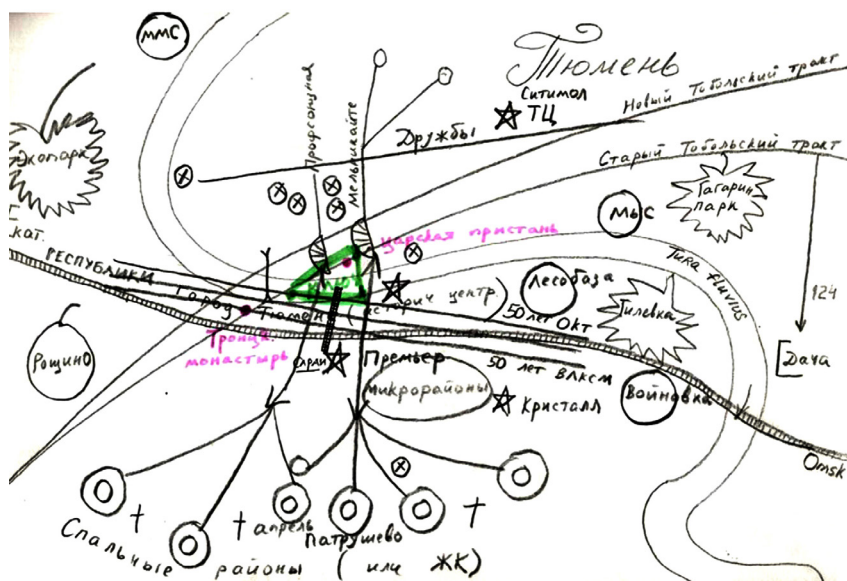 ММС
Тюмень
Ситимол
ТЦ
Новый Тобольский тракт
Дружбы
Старый Тобольский тракт
Экопарк
Профсоюзная
Мельникайте
Гагарин
парк
Мыс
Царская пристань
кат.
РЕСПУБЛИКИ
Город Тюмень (историч центр.)
КЛЮЧ
Лесобаза
Tura fluvius
Гилевка
124
50 лет Окт
Троицк.
монастырь
Рощино
Премьер
50 лет ВЛКСМ
Дача
микрорайоны
Кристалл
Войновка
Omsk
апрель
Патрушево
Спальные районы (или ЖК)